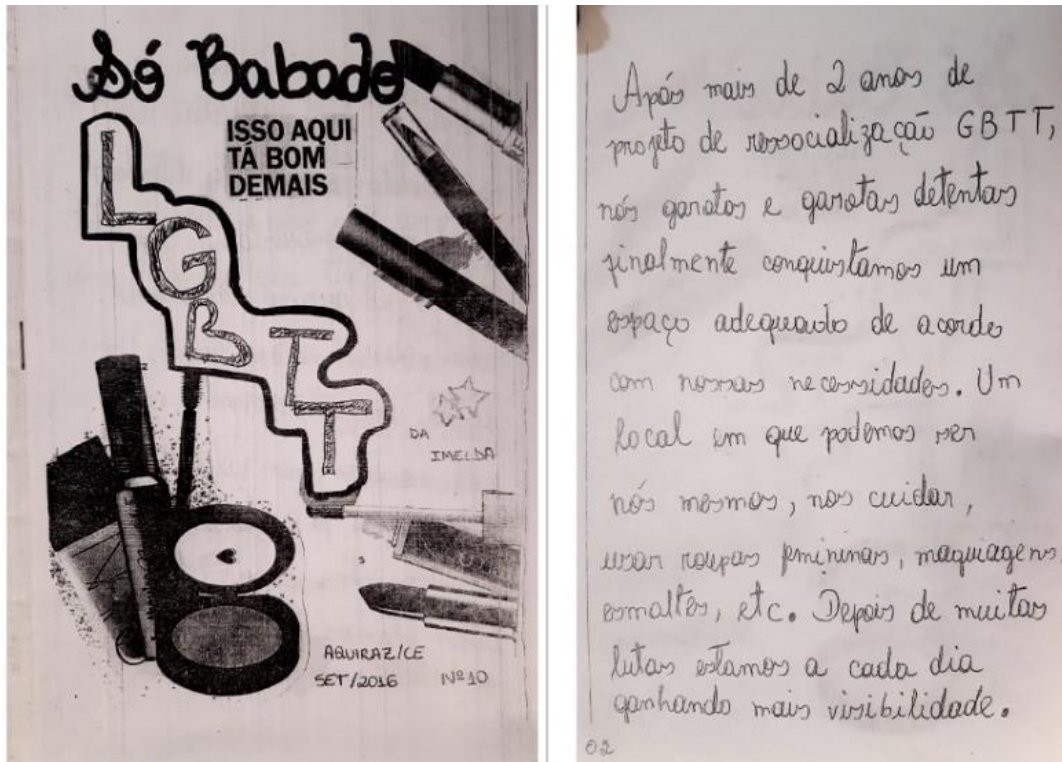 Só Babado
ISSO AQUI
TÁ BOM
DEMAIS
L
G
B
T
L
T
DA
IMELDA
AQUIRAZ/CE
SET/2016 Nº10
Após mais de 2 anos de
projeto de ressocialização GBTT,
nós garotos e garotas detentas
finalmente conquistamos um
espaço adequado de acordo
com nossas necessidades. Um
local em que podemos ser
nós mesmos, nos cuidar,
usar roupas femininas, maquiagens,
esmaltes, etc. Depois de muitas
lutas estamos a cada dia
ganhando mais visibilidade.
02